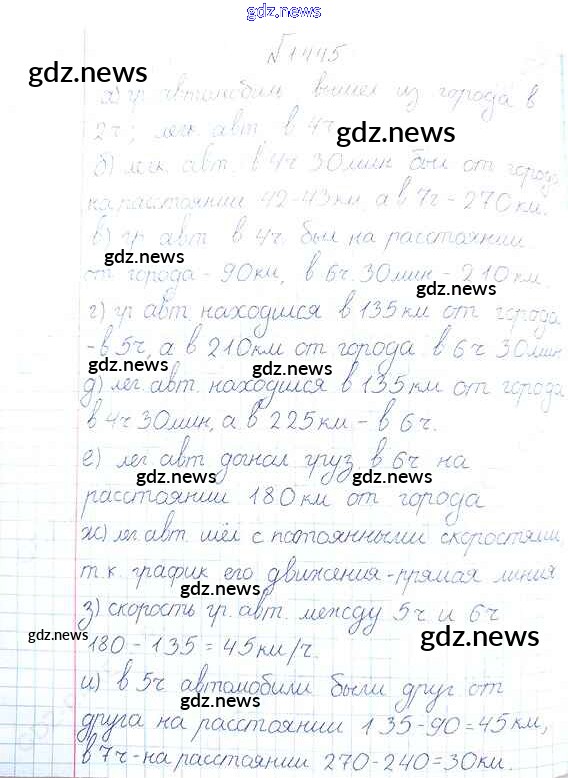 gdz.ru
№1445
gdz.ru
а) гр. автомобиль вышел из города в
2ч; легк. авт. в 4ч.
gdz.ru
б) легк. авт. в 4ч 30мин был от города
на расстоянии 42-43км, а в 7ч - 270км.
gdz.ru
в) гр. авт. в 4ч. был на расстоянии
gdz.ru
от города - 90км, в 6ч. 30мин - 210км.
gdz.ru
г) гр. авт. находился в 135км от города
- в 5ч, а в 210км от города в 6ч 30мин
gdz.ru gdz.ru
д) лег. авт. находился в 135км от города
в 4ч 30мин, а в 225км - в 6ч.
gdz.ru
е) лег. авт. догнал груз. в 6ч на
gdz.ru gdz.ru
расстоянии 180км от города
ж) лег. авт. шёл с постоянными скоростями
т.к. график его движения - прямая линия
gdz.ru
з) скорость гр. авт. между 5ч и 6ч
gdz.ru gdz.ru
180 - 135 = 45км/ч.
и) в 5ч автомобили были друг от
gdz.ru
друга на расстоянии 135-90=45км,
в 7ч - на расстоянии 270-240=30км.
gdz.ru gdz.ru